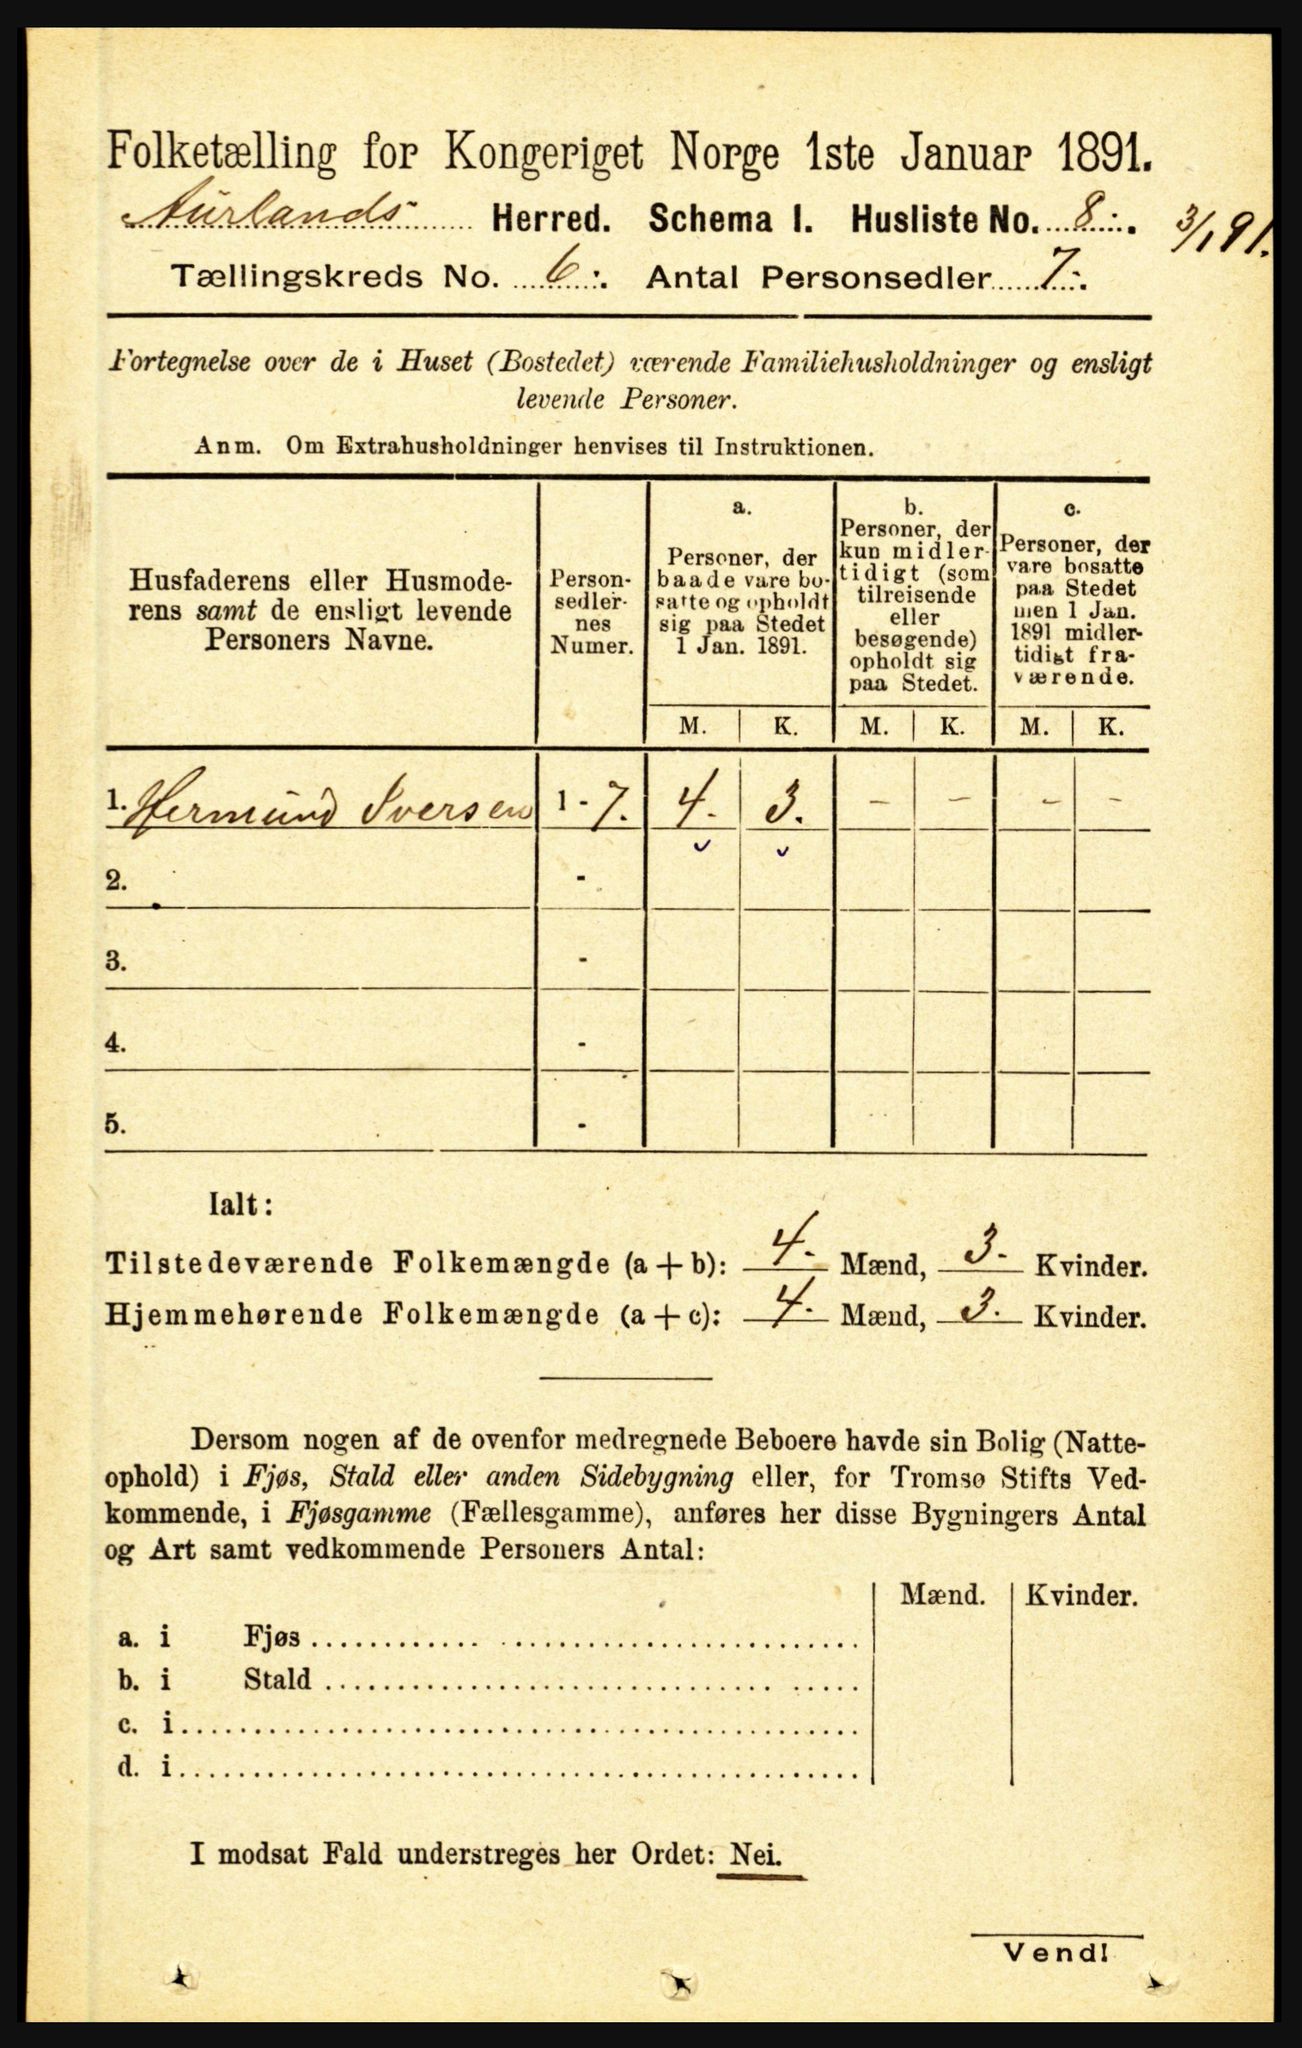 Folketælling for Kongeriget Norge 1ste Januar 1891.
Aurlands Herred. Schema I. Husliste No. 8. 3/1 91.
Tællingskreds No. 6. Antal Personsedler 7.
Fortegnelse over de i Huset (Bostedet) værende Familiehusholdninger og ensligt
levende Personer.
Anm. Om Extrahusholdninger henvises til Instruktionen.
Husfaderens eller Husmode-
rens samt de ensligt levende
Personers Navne.
Person-
sedler-
nes
Numer.
a.
Personer, der
baade vare bo-
satte og opholdt
sig paa Stedet
1 Jan. 1891.
b.
Personer, der
kun midler-
tidigt (som
tilreisende
eller
besøgende)
opholdt sig
paa Stedet.
c.
Personer, der
vare bosatte
paa Stedet
men 1 Jan.
1891 midler-
tidigt fra-
værende.
M. K. M. K. M. K.
1. Hermund Iversen 1 - 7. 4. 3. - - - -
2. -
3. -
4. -
5. -
Ialt:
Tilstedeværende Folkemængde (a + b): 4. Mænd, 3. Kvinder.
Hjemmehørende Folkemængde (a + c): 4. Mænd, 3. Kvinder.
Dersom nogen af de ovenfor medregnede Beboere havde sin Bolig (Natte-
ophold) i Fjøs, Stald eller anden Sidebygning eller, for Tromsø Stifts Ved-
kommende, i Fjøsgamme (Fællesgamme), anføres her disse Bygningers Antal
og Art samt vedkommende Personers Antal:
Mænd. Kvinder.
a. i Fjøs
b. i Stald
c. i
d. i
I modsat Fald understreges her Ordet: Nei.
Vend!